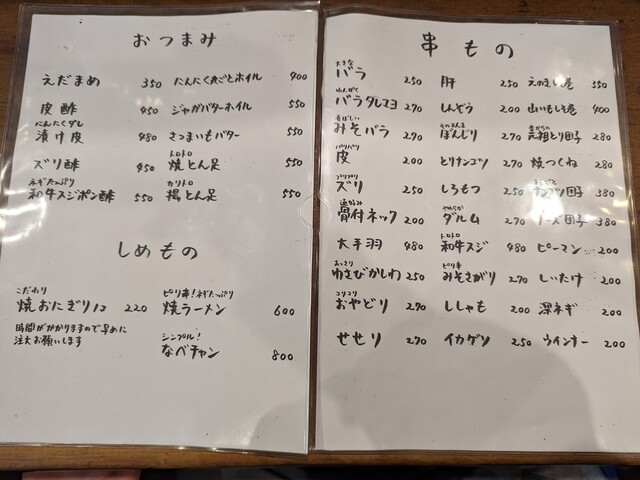 おつまみ
えだまめ 350 にんにく丸ごとホイル 400
皮酢 450 ジャガバターホイル 550
にんにくダレ
漬け皮 480 さつまいもバター 550
トロトロ
ズリ酢 450 焼とん足 550
ネギたっぷり カリトロ
和牛スジポン酢 550 揚とん足 550
しめもの
こだわり ピリ辛!ネギたっぷり
焼おにぎり1コ 220 焼ラーメン 600
時間がかかりますので早めに
注文お願いします
シンプル!
なべチャン 800
串もの
大きな
バラ 250 肝 250 えのき巻 350
バラタレマヨ 270 しんぞう 200 山いもしそ巻 400
香ばしい
みそバラ 270 ぼんじり 270 元祖とり団子 280
パリパリ
皮 200 とりナンコツ 270 焼つくね 280
プリプリ
ズリ 250 しろもつ 250 団子 380
やわらか
骨付ネック 200 ダルム 270 チーズ団子 380
トロトロ
大手羽 480 和牛スジ 480 ピーマン 200
あっさり ピリ辛
ゆさびかしわ 250 みそさがり 270 しいたけ 200
コリコリ
おやどり 270 ししゃも 200 深ネギ 200
せせり 270 イカゲソ 250 ウインナー 200